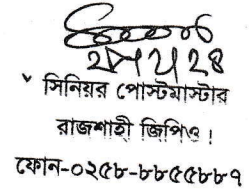 সিনিয়র পোস্টমাস্টার
রাজশাহী জিপিও।
ফোন-০২৫৮-৮৮৫৫৮৮৭